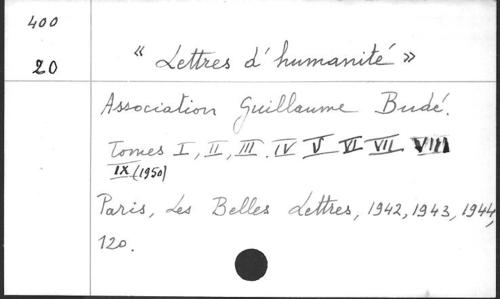 400
20
« Lettres d'humanité »
Association Guillaume Budé.
Tomes I, II, III. IV V VI VII VIII
IX (1950)
Paris, Les Belles Lettres, 1942, 1943, 1944,
120.